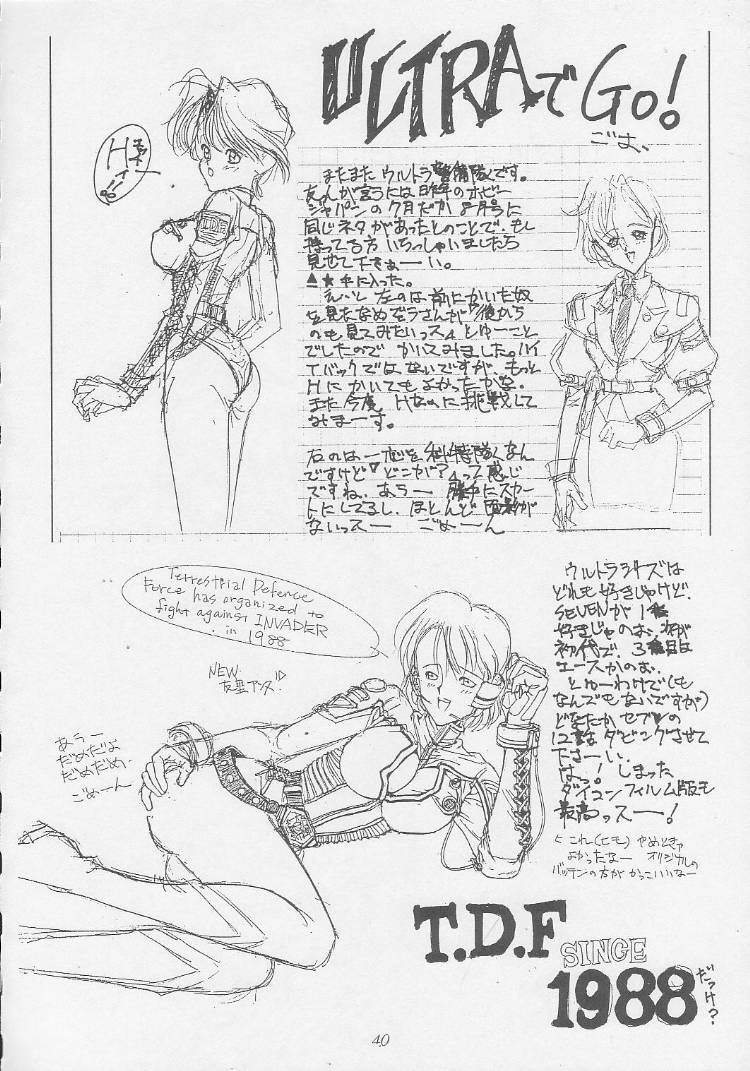 ULTRAでGO!
ごお、
Hモデイー!!
またまたウルトラ警備隊です。
友人が言うには昨年のホビー
ジャパンの7月だか8月号に
同じネタがあったとのことで、もし
持ってる方いらっしゃいましたら
見せて下さぁーい。
▲★手に入った。
えーと左のは前にかいた奴
を見たなめぞうさんが「後から
のも見てみたいっス」とゆーこと
でしたので かいてみました。ハイ
レバックではないですが、もっと
Hにかいてもよかったかな。
また今度、Hなのに挑戦して
みまーす。
右のは一応科特隊なん
ですけど「どこが?」って感じ
ですね。あうー 勝手にスカー
トにしてるし、ほとんど面影が
ないっスー ごめーん
Terrestrial Defence
Force has organized to
fight against INVADER
in 1988
NEW
友里アンヌ!
あうー
だめだよ
だめだめだい
ごめーん
ウルトラシリーズは
どれも好きじゃけど、
SEVENが1番
好きじゃのお、次が
初代で、3番目は
エースかのお、
とゆーわけで(も
なんでもないですが)
どなたかセブンの
12話ダビングさせて
下さーい。
はっ!しまった
ダイコンフィルム版も
最高っスー!
これ(ヒモ)やめときゃ
よかったなー オリジナルの
バッテンの方がかっこいいなー
T.D.F
SINCE
1988
だっけ?
40